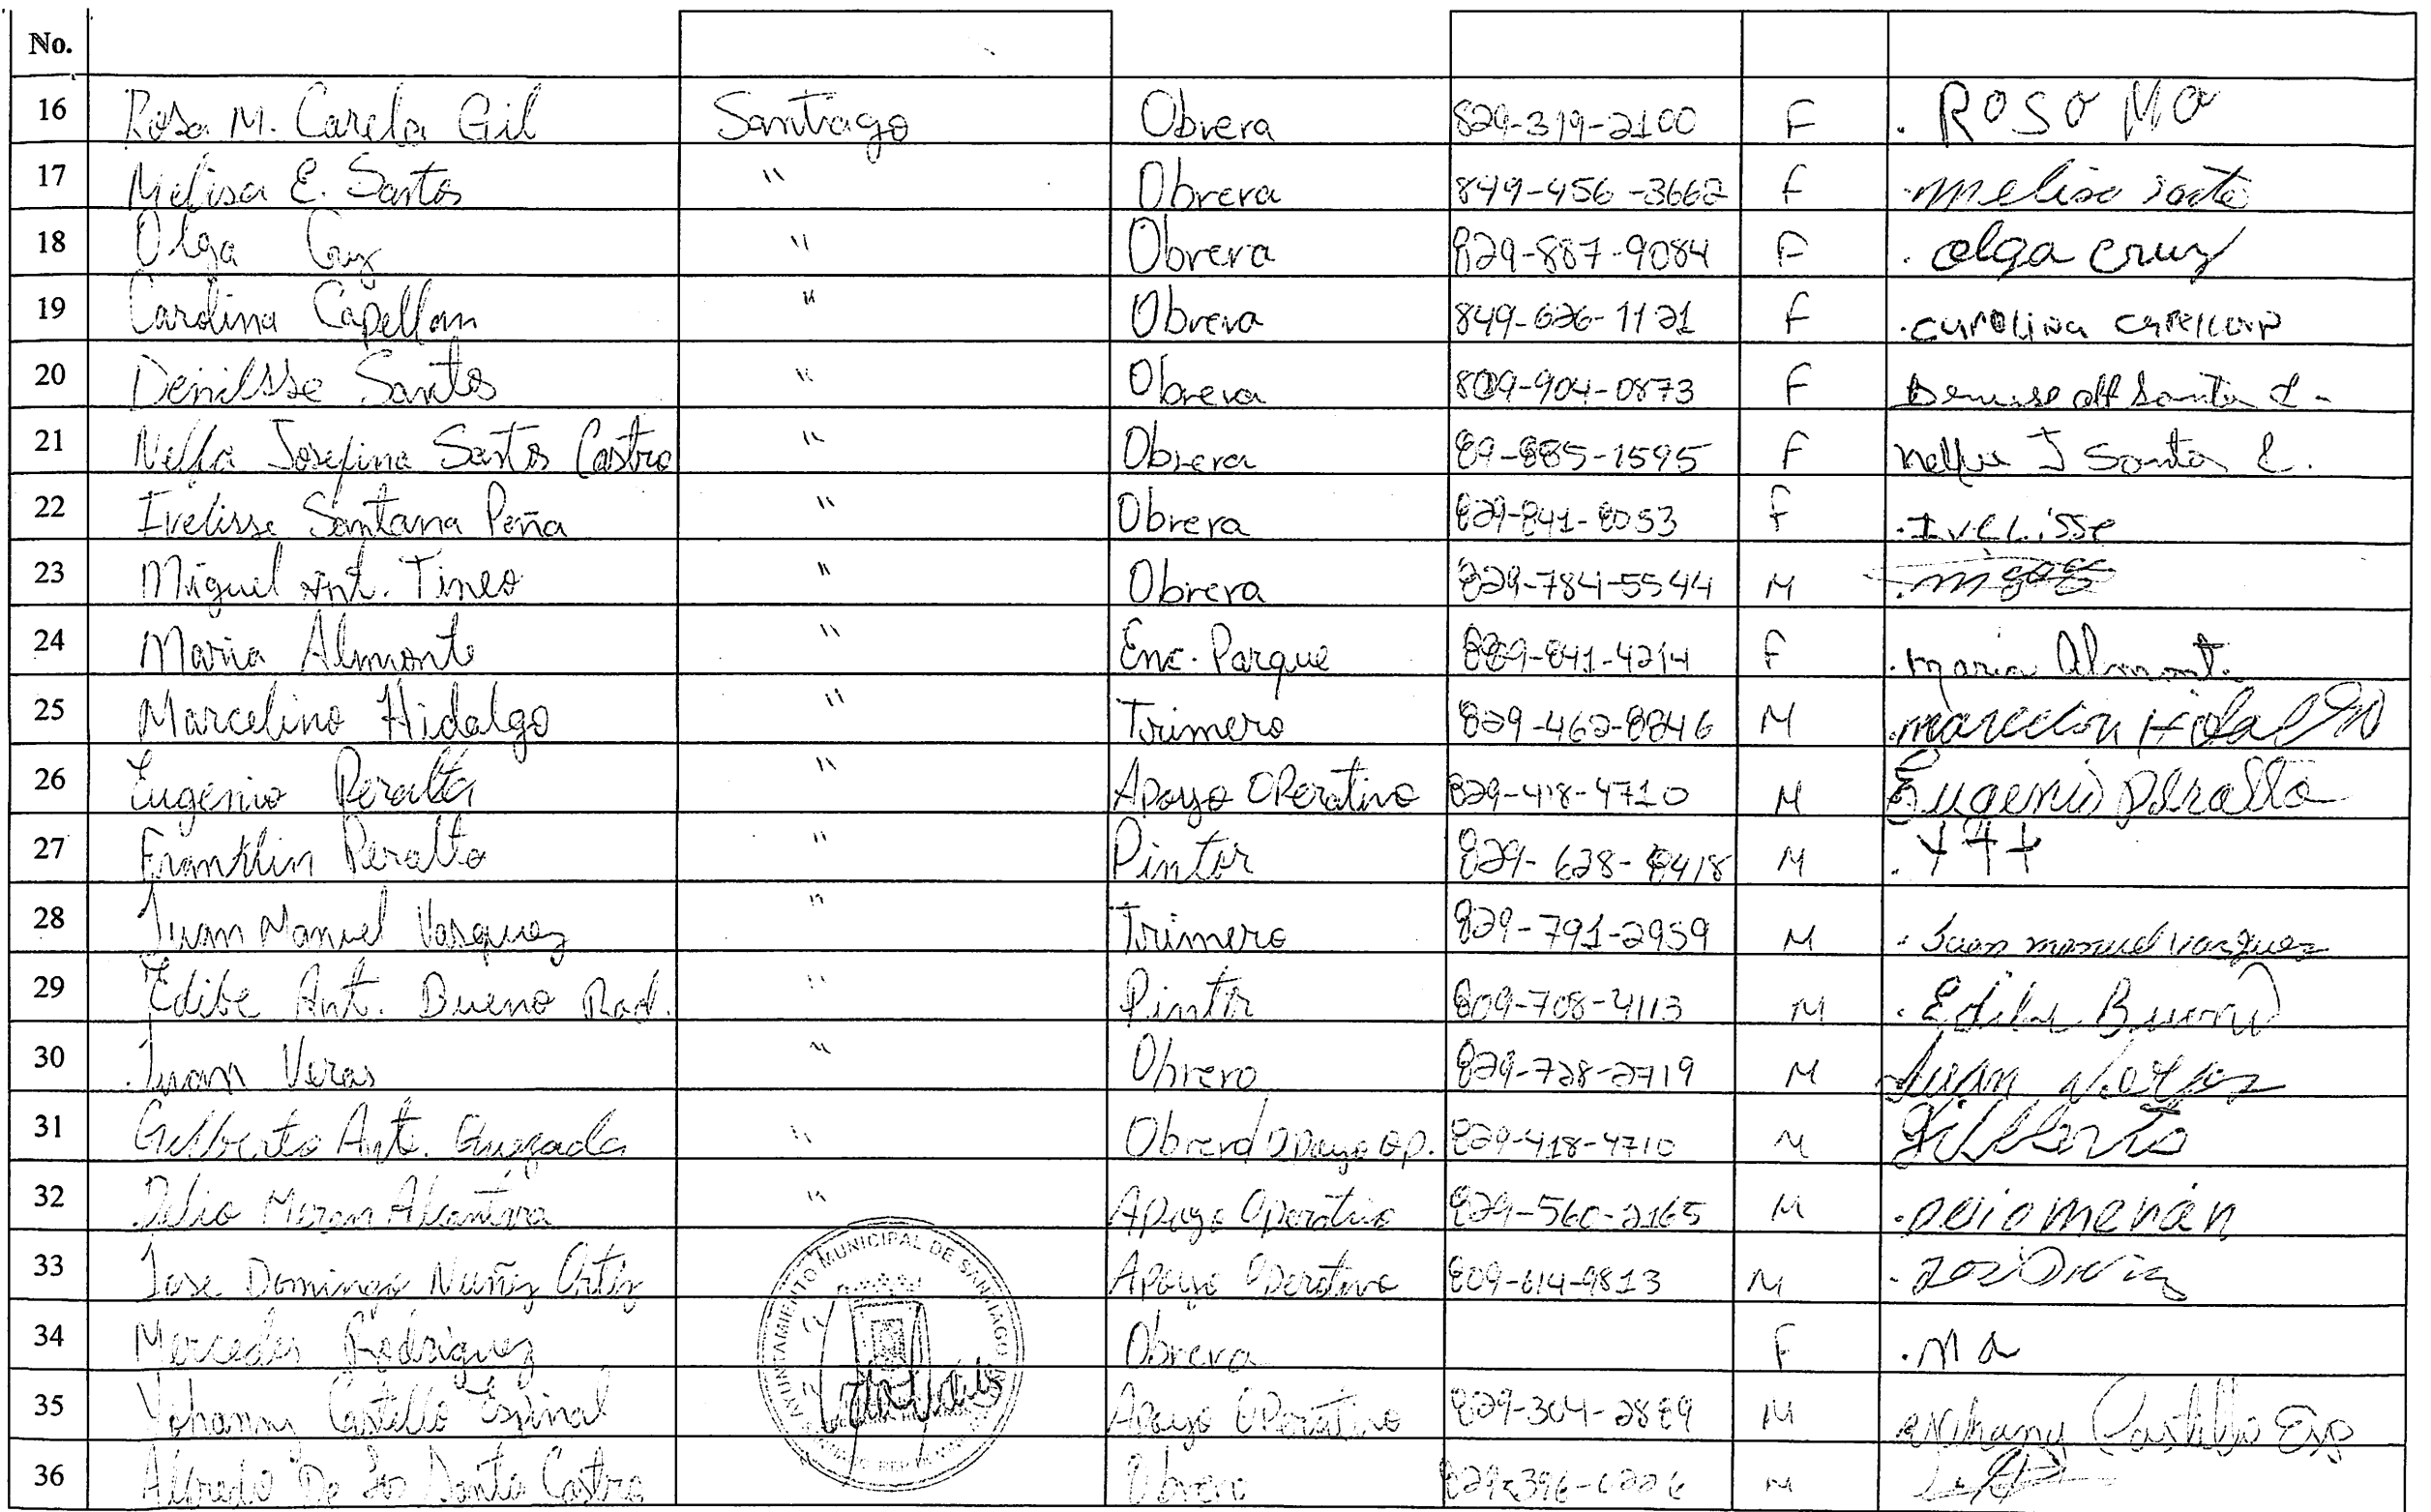 No.
16 Rosa M. Carela Gil Santiago Obrera 829-319-2100 F . ROSO MO
17 Melisa E. Santos " Obrera 849-456-3662 F .melisa
18 Olga Cruz " Obrera 829-887-9084 F . olga cruz
19 Carolina Capellan " Obrera 849-626-1121 F .carolina
20 Denilsse Santos " Obrera 809-904-0873 F
21 Josefina Santos Castro " Obrera 89-885-1595 F J Santos C.
22 Ivelisse Santana Peña " Obrera 829-841-8053 F .IVELisse
23 Miguel Ant. Tineo " Obrera 829-784-5544 M
24 Maria Almonte " Enc. Parque 841-4214 F .maria Almont.
25 Marcelino Hidalgo " Trimero 829-462-8846 M
26 Eugenio Peralta " Apoyo OPerativo 829-418-4710 M Eugenio Peralta
27 Franklin Peralta " Pintor 829-628-8418 M . +++
28 Juan Manuel Vasquez " Trimero 829-791-2959 M . Juan manuel vasquez
29 Edibe Ant. Bueno Rod. " Pintor 809-708-4113 M . Edibe Bueno
30 Juan Veras " Obrero 829-728-2719 M Juan Veras
31 Gilberto Ant. Quezada " Obrero/Apoyo Op. 829-418-4710 M Gilberto
32 Delio Meran Alcantara " Apoyo Operativo 829-560-2165 M .Delio meran
33 Jose Domingo Nuñez Ortiz " Apoyo Operativo 809-614-9813 M
34 Mercedes Rodriguez Obrera F .Ma
35 Yohanny Castillo Espinal Apoyo OPerativo 829-304-2889 M Castillo Esp
36 Alfredo De Los Santo Castro Obrero 829-396-6226 M
AYUNTAMIENTO MUNICIPAL DE SANTIAGO